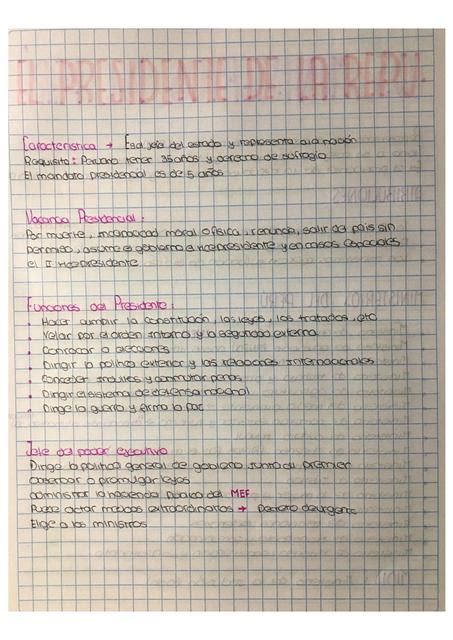 EL PRESIDENTE DE LA REPÚ
Característica → Es el jefe del estado y representa a la nación
Requisito: Peruano tener 35 años y derecho de sufragio
El mandato presidencial es de 5 años
Vacancia Presidencial:
Por muerte, incapacidad moral o física, renuncia, salir del país sin
permiso, asume el gobierno el vicepresidente y en casos especiales
el II vicepresidente
Funciones del Presidente:
• Hacer cumplir la constitución, las leyes, los tratados, etc
• Velar por el orden interno y la seguridad externa
• Convocar a elecciones
• Dirigir la política exterior y las relaciones internacionales
• Conceder indultos y conmutar penas
• Dirigir el sistema de defensa nacional
• Dirige la guerra y firma la paz
Jefe del poder ejecutivo
Dirige la política general de gobierno junto al premier
observar o promulgar leyes
administrar la hacienda pública del MEF
Puede dictar medidas extraordinarias → Decreto de urgencia
Elige a los ministros